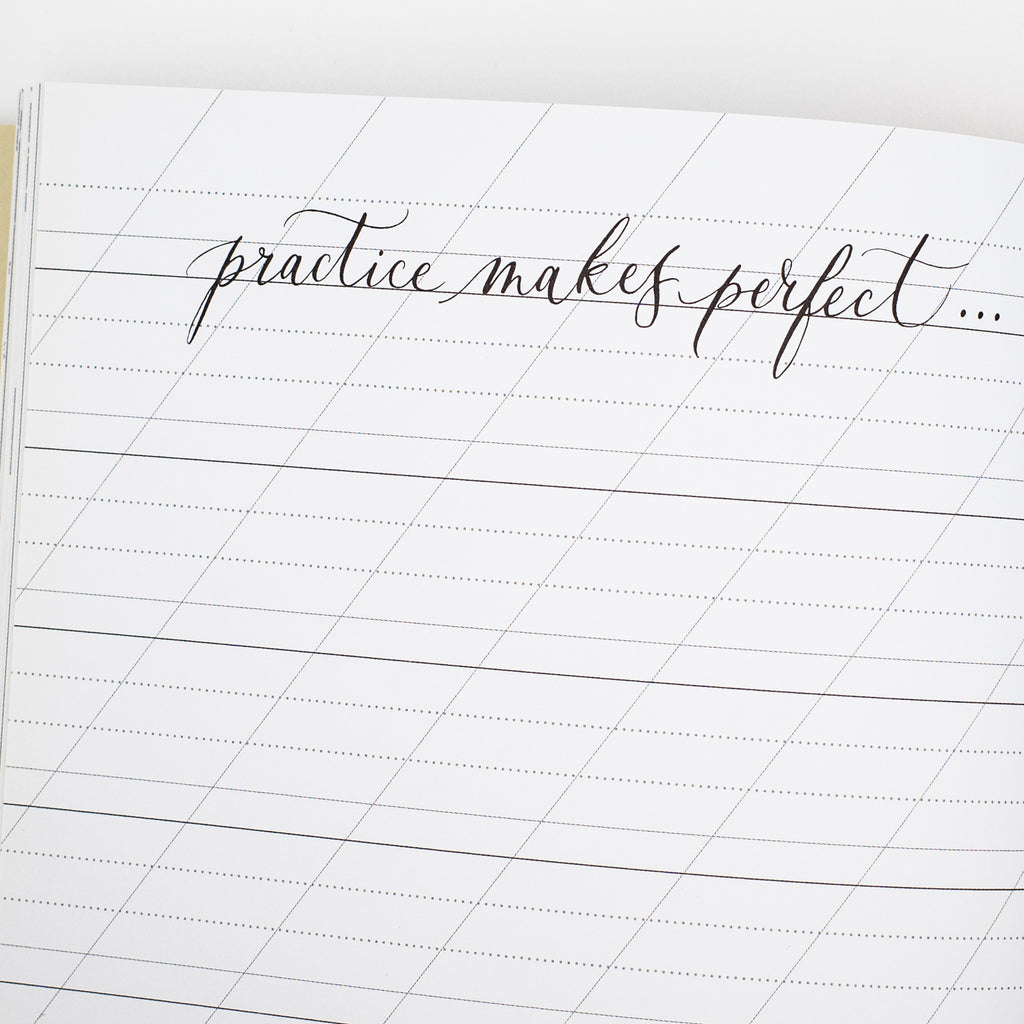 practice makes perfect...